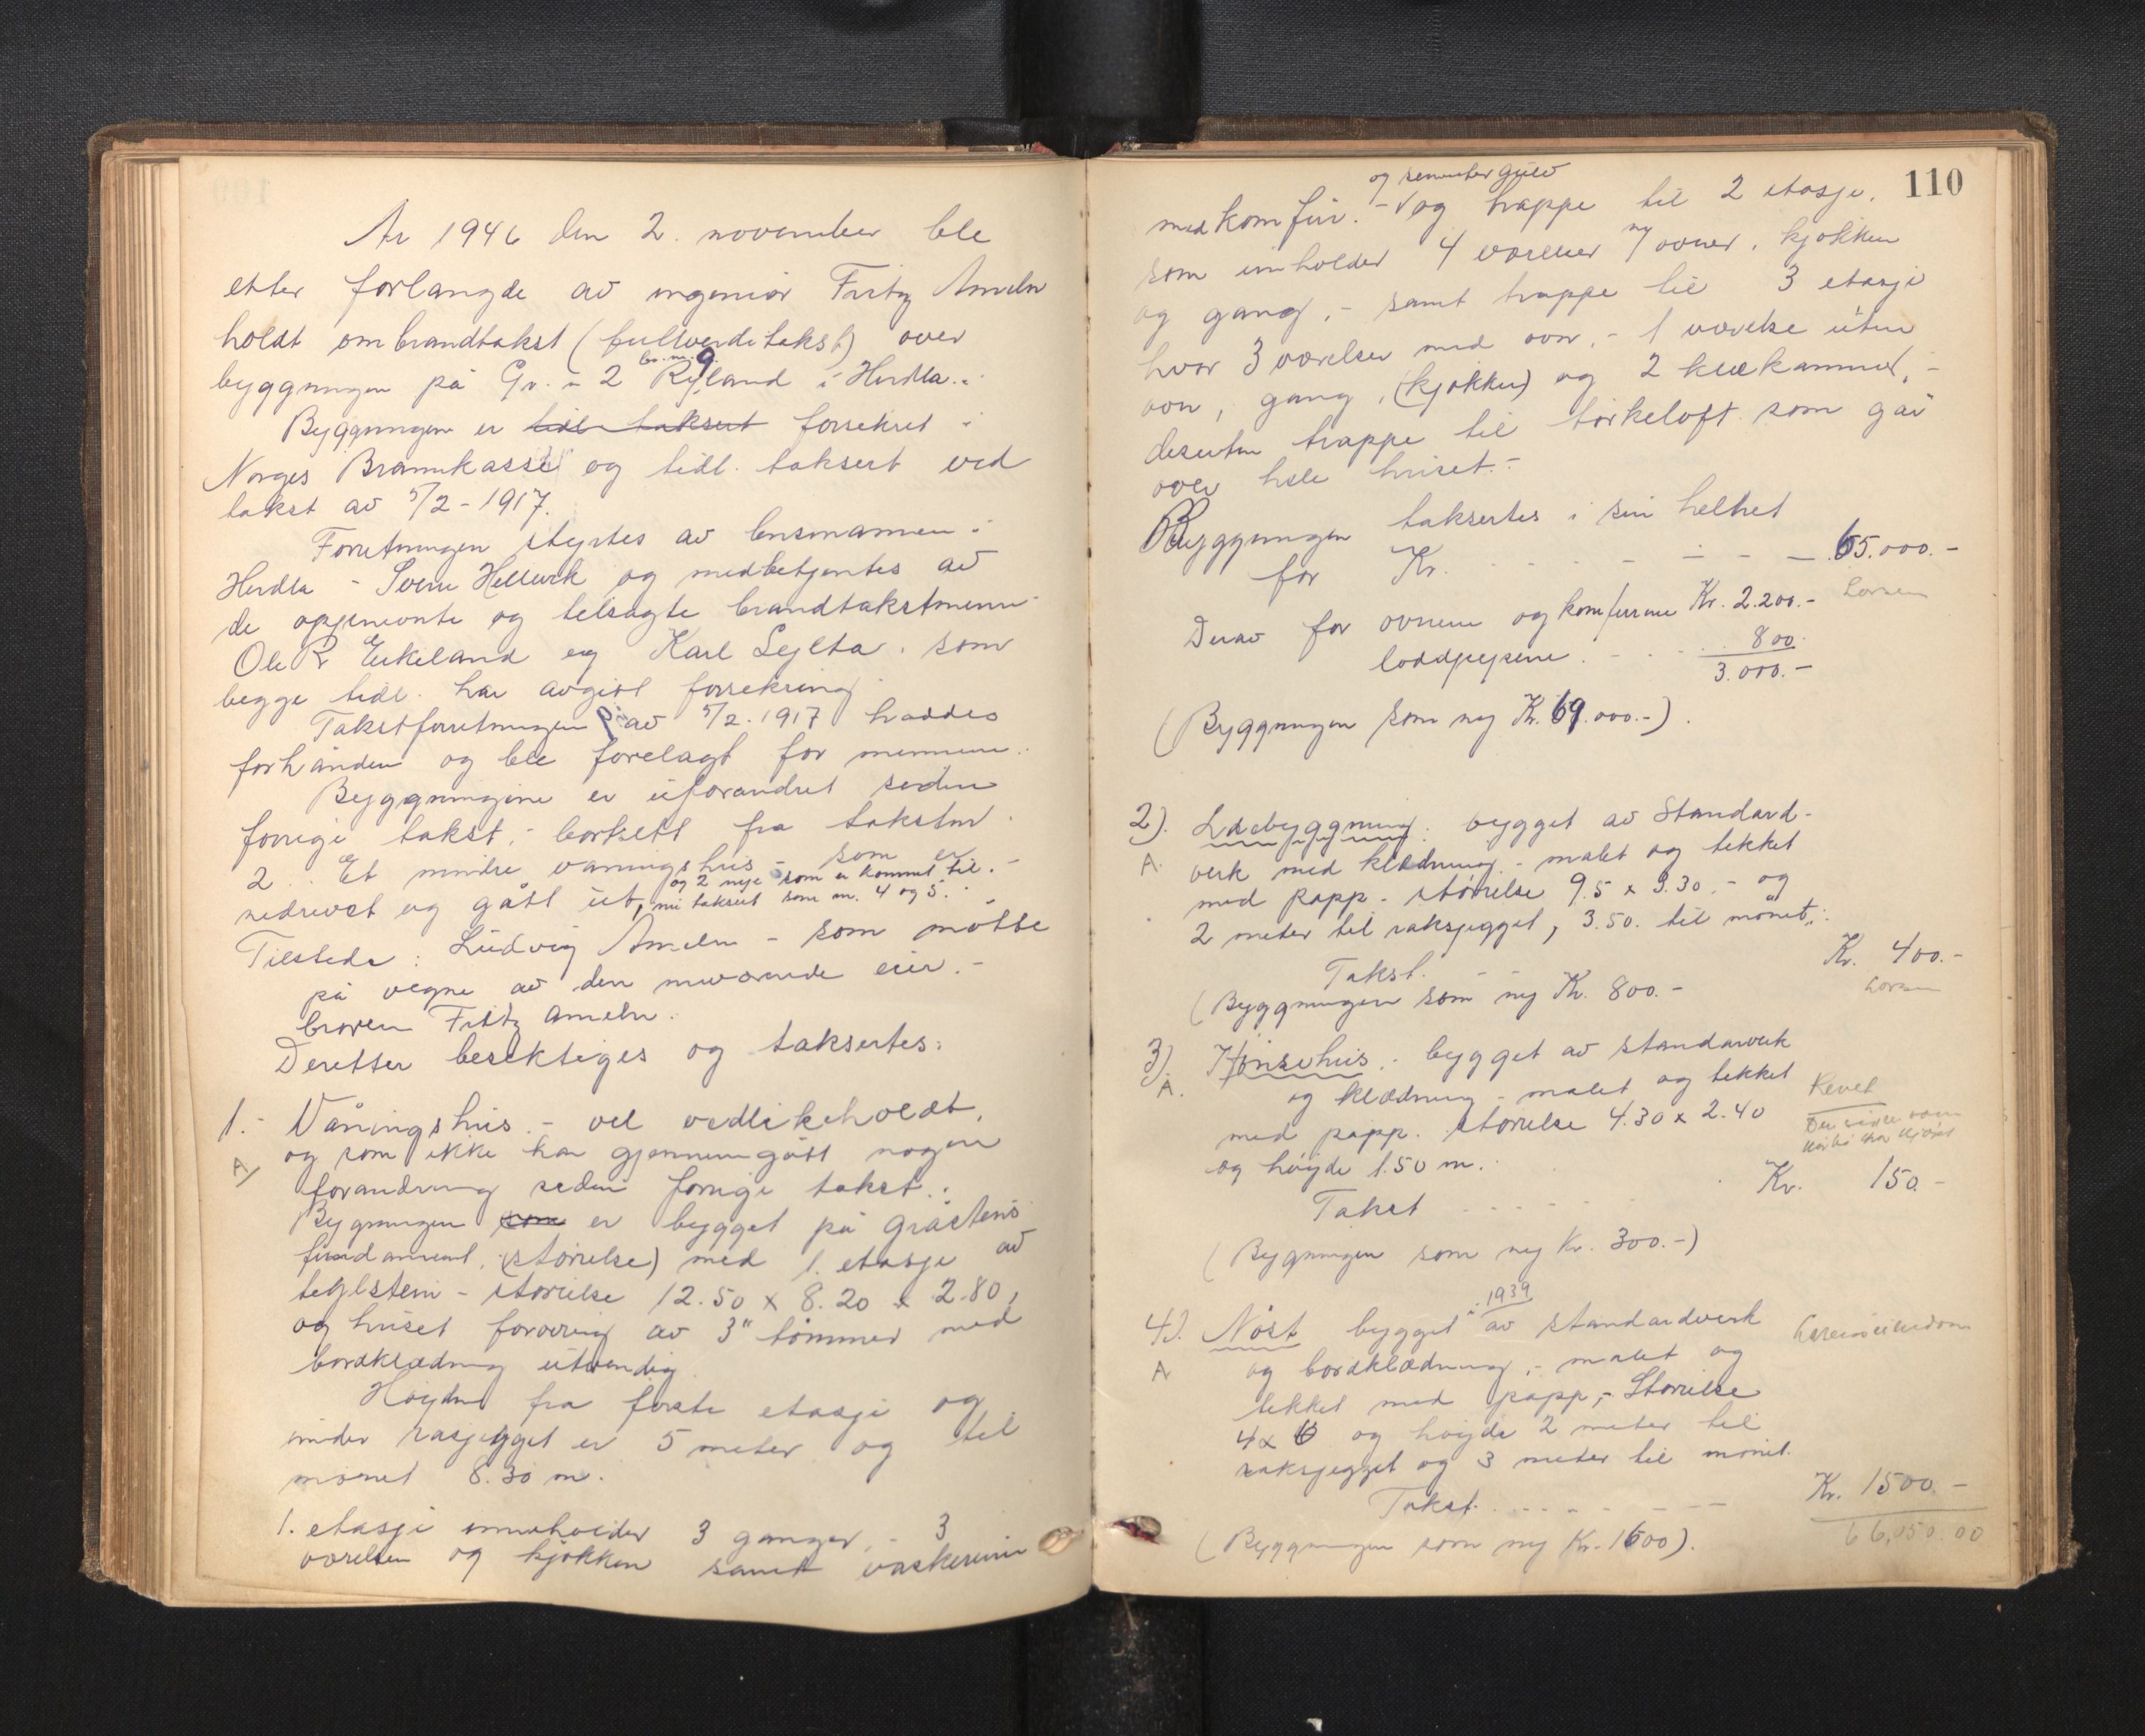 År 1946 den 2. november ble
etter forlangde av ingeniør Fritz Ameln
holdt ombrandtakst (fullverditakst) over
br. nr. 9.
bygningen på Gr. nr 2 Ryland i Herdla.
Byggningen er tidl. taksert forsikret i
Norges Brannkasse og tidl. taksert ved
takst av 5/2-1917.
Forretningen styrtes av lensmannen i
Herdla - Sverre Hellevik og medbetjentes av
de oppnevnte og tilsagte brandtakstmenn
Ole R Eikeland og Karl Sylta. som
begge tidl. har avgivt forsikring
Takstforretningen av 5/2.1917 haddes
forhånden og ble forelagt for mennene.
Byggningene er uforandret siden
forrige takst, - bortsett fra takstnr.
2. Et mindre våningshus - som er
og 2 nye som er kommet til. -
nedrevet og gått ut, nu taksert som nr. 4 og 5.
Tilstede: Ludvig Ameln - som møtte
på vegne av den nuværende eier. -
broren Fritz Ameln.
Deretter besiktiges og taksertes:
1. - Våningshus. - vel vedlikeholdt,
A/
og som ikke har gjennemgått nogen
forandring siden forrige takst.
Bygningen som er bygget på gråstens
fundament, (størrelse) med 1. etasje av
teglstein - størrelse 12.50 x 8.20 x 2.80,
og huset forøvrig av 3" tømmer med
bordklædning utvendig.
Høyden fra første etasje og
under rasjegget er 5 meter og til
mønet 8.30 m.
1. etasje inneholder 3 ganger, - 3
værelser og kjøkken samt vaskerum
110
og sementer gulv
med komfur. - og trappe til 2 etasje,
som inneholder 4 værelser m/ ovner, kjøkken
og gang, - samt trappe til 3 etasje
hvor 3 værelser med ovn, - 1 værelse uten
ovn, gang, (kjøkken) og 2 klækammer, -
desuten trappe til tørkeloft som går
over hele huset. -
Byggningen taksertes i sin helhet
for Kr. - - - - - 65.000.-
Derav for ovnene og komfurene Kr. 2.200.-
loddpipene . - - . 800.
3.000.-
(Byggningen som ny Kr. 69.000.-).
2). Løebyggning: bygget av Standard-
A.
verk med klædning - malet og tekket
med papp. - størrelse 9.5 x 3.30. - og
2 meter til raksjegget, 3.50. til mønet.
Takst. - - Kr. 400.-
(Byggningen som ny Kr. 800.-
3). Hønsehus. - bygget av standarverk
A.
og klædning - malet og tekket
Revet
med papp. størrelse 4.30 x 2.40
og høyde 1.50 m.
Takst - - - - Kr. 150.-
(Bygningen som ny Kr. 300.-)
1939
4). Nøst bygget i av standardverk
A
og bordklædning, - malet og
tekket med papp, - Størrelse
4 x 6 og høyde 2 meter til
raksjegget og 3 meter til mønet.
Takst. - - - - - Kr. 1500.-
66.050.00
(Byggningen som ny Kr. 1600).